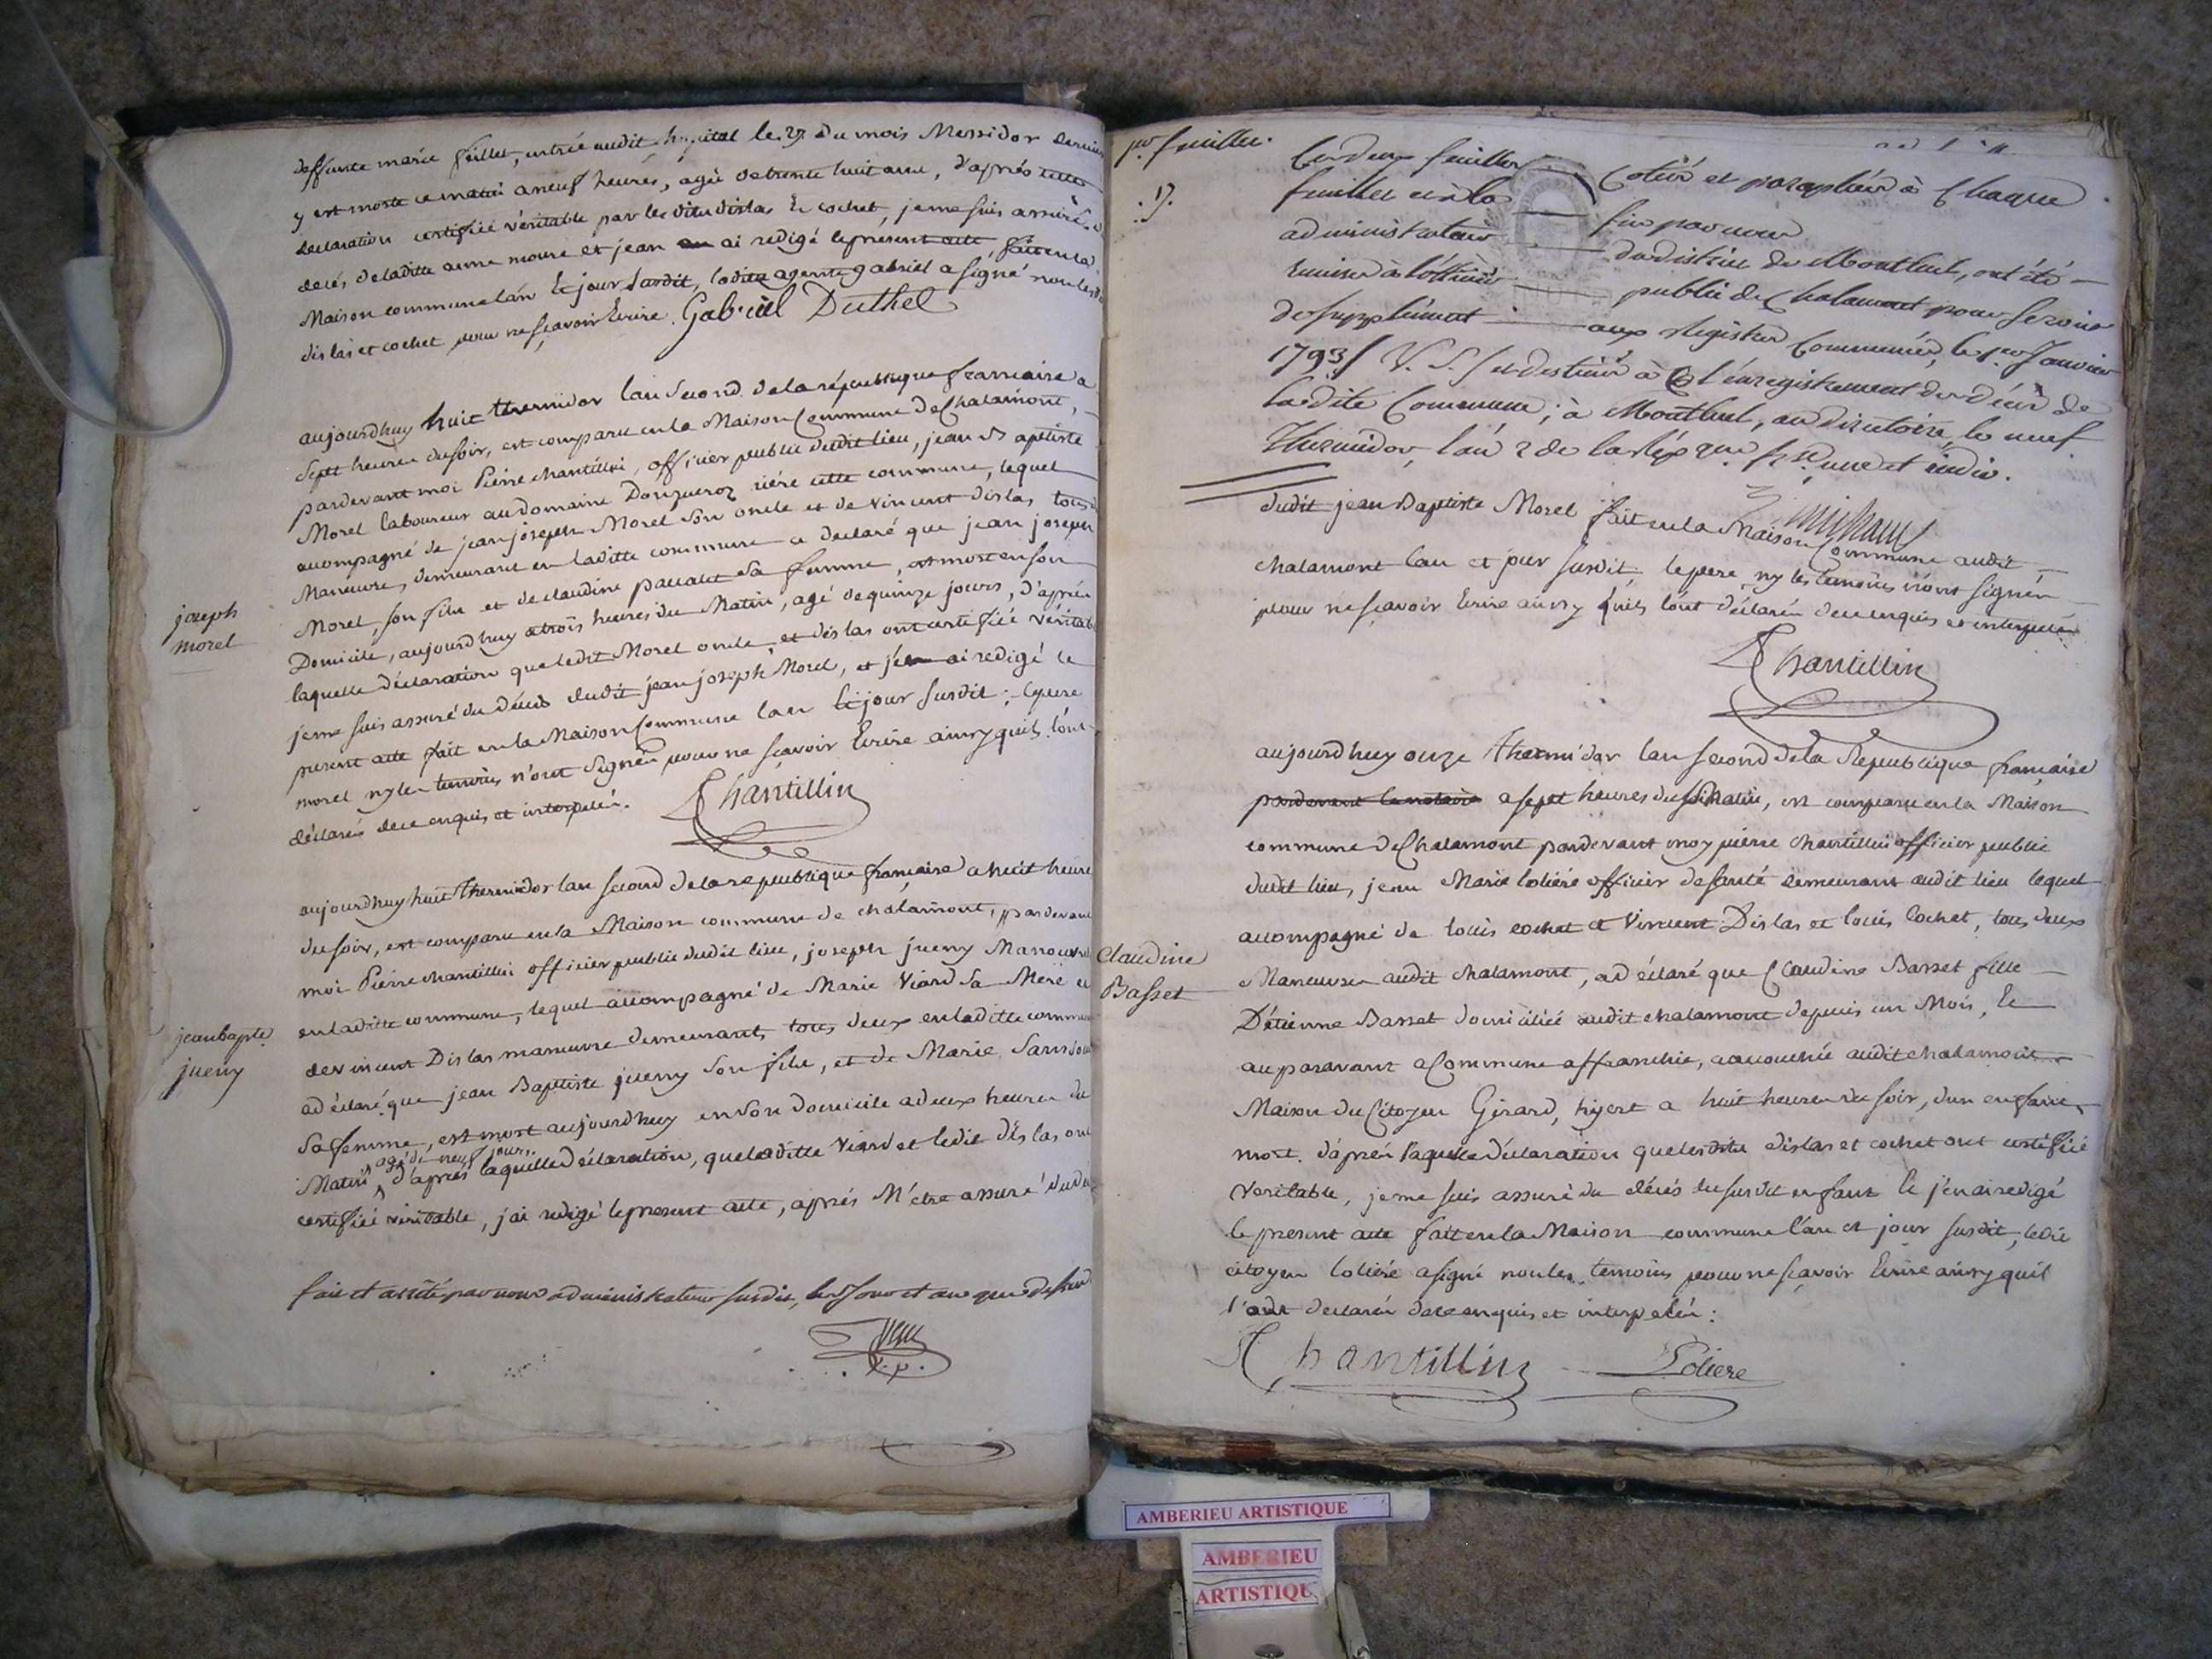 deffunte marie feillet, entrée audit hopital le 27 du mois Messidor dernier
y est morte ce matin a neuf heures, agée de trente huit ans, d'aprés cette
declaration certifiée véritable par lesdits dislas et cochet, je me suis assuré du
decés de laditte anne moure et jean ai redigé le present acte, fait en la
Maison commune l'an et jour susdit, laditte agente gabriel a signé non lesdits
dislas et cochet pour ne sçavoir Ecrire. Gabriel Duthel
aujourdhuy huit thermidor l'an second de la république francaise a
sept heures du soir, est comparu en la Maison Commune de Chalamont,
pardevant moi Pierre chantillin, officier public dudit lieu, jean Baptiste
Morel laboureur au domaine riére cette commune, lequel
accompagné de jean joseph Morel son oncle et de vincent dislas, tous
Maneuvre, demeurant en laditte commune a declaré que jean joseph
joseph
morel
Morel, son fils et de claudine sa femme, est mort en son
Domicile, aujourdhuy a trois heures du Matin, agé de quinze jours, d'aprés
laquelle déclaration que ledit Morel oncle, et dislas ont certifiée véritable
je me suis assuré du décés dudit jean joseph Morel, et j'en ai redigé le
present acte fait en la Maison Commune l'an et jour susdit; le pere
morel ny les temoins n'ont signés pour ne sçavoir Ecrire ainsy quils l'ont
déclarés de ce enquis et interpelés. Chantillin
aujourdhuy huit Thermidor l'an second de la republique française a huit heures
du soir, est comparu en la Maison commune de chalamont, pardevant
moi Pierre chantillin officier public dudit lieu, joseph jueny Manouvrier
en laditte commune, lequel accompagné de Marie Viard sa Mere et
de vincent Dislas maneuvre demeurants tous deux en laditte commune
jean bapte.
jueny
a déclaré que jean Baptiste jueny son fils, et de Marie
sa femme, est mort aujourdhuy en son domicile a deux heures du
agé de neuf jours
Matin, d'aprés laquelle déclaration, que laditte Viard et ledit dislas ont
certifiée véritable, j'ai redigé le present acte, aprés M'être assuré du décés
fait et arrêté par nous administrateur susdit, les Jour et an que dessus
1er feuillet.
Ces deux feuilles Cotées et paraphées à Chaque
feuillet et à la fin par nous
administrateur du district de Montluel, ont été
remises à l'officier public de Chalamont pour servir
de supplément aux Registres Commencés, le 1er. Janvier
1793 / V. S. / et destinés à l'énregistrement des décès de
Ladite Commune; à Montluel, au directoire, le neuf
Thermidor, l'an 2 de la Rép que. frse. une et indiv.
dudit jean Baptiste Morel fait en la Maison Commune audit
chalamont l'an et jour susdit, le pere ny les temoins n'ont signés
pour ne sçavoir Ecrire ainsy quils l'ont déclarés de ce enquis et interpelés
Chantillin
aujourdhuy onze thermidor l'an second de la Republique française
pardevant le notaire a sept heures du Matin, est comparu en la Maison
commune de Chalamont pardevant moy pierre chantillin officier public
dudit lieu, jean Marie Loliére officier de santé demeurant audit lieu lequel
accompagné de louis cochet et Vincent Dislas et louis Cochet, tous deux
Claudine
Basset
Maneuvres audit chalamont, a déclaré que Claudine Basset fille
D'étienne Basset domiciliée audit chalamont depuis un Mois, et
auparavant a Commune affranchie, a accouchée audit chalamont
Maison du Citoyen Girard, hyert a huit heures du soir, d'un enfant
mort. d'aprés laquelle déclaration que lesdits dislas et cochet ont certifiée
veritable, je me suis assuré du décés du susdit enfant et j'en ai redigé
le present acte fait en la Maison commune l'an et jour susdit, ledit
citoyen Loliére a signé non les temoins pour ne sçavoir Ecrire ainsy quil
l'ont declarés de ce enquis et interpelés:
Chantillin Loliere
AMBERIEU ARTISTIQUE
AMBERIEU
ARTISTIQU